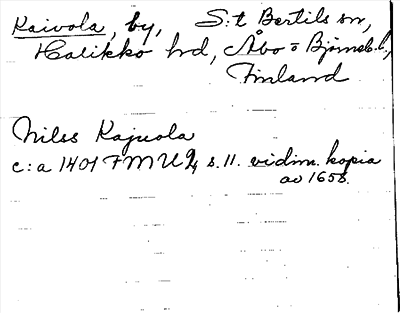 Kaivola, by, S:t Bertils sn,
Halikko hd, Åbo o Björneb. l,
Finland
Nilss Kajuola
c:a 1401 FMU 2, s. 11. vidim. kopia
av 1658.